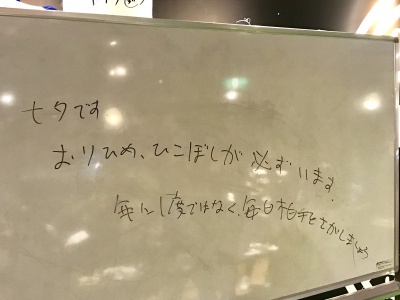 七夕です
おりひめ、ひこぼしが必ずいます。
毎に1度ではなく、毎日相手とさがしましょう